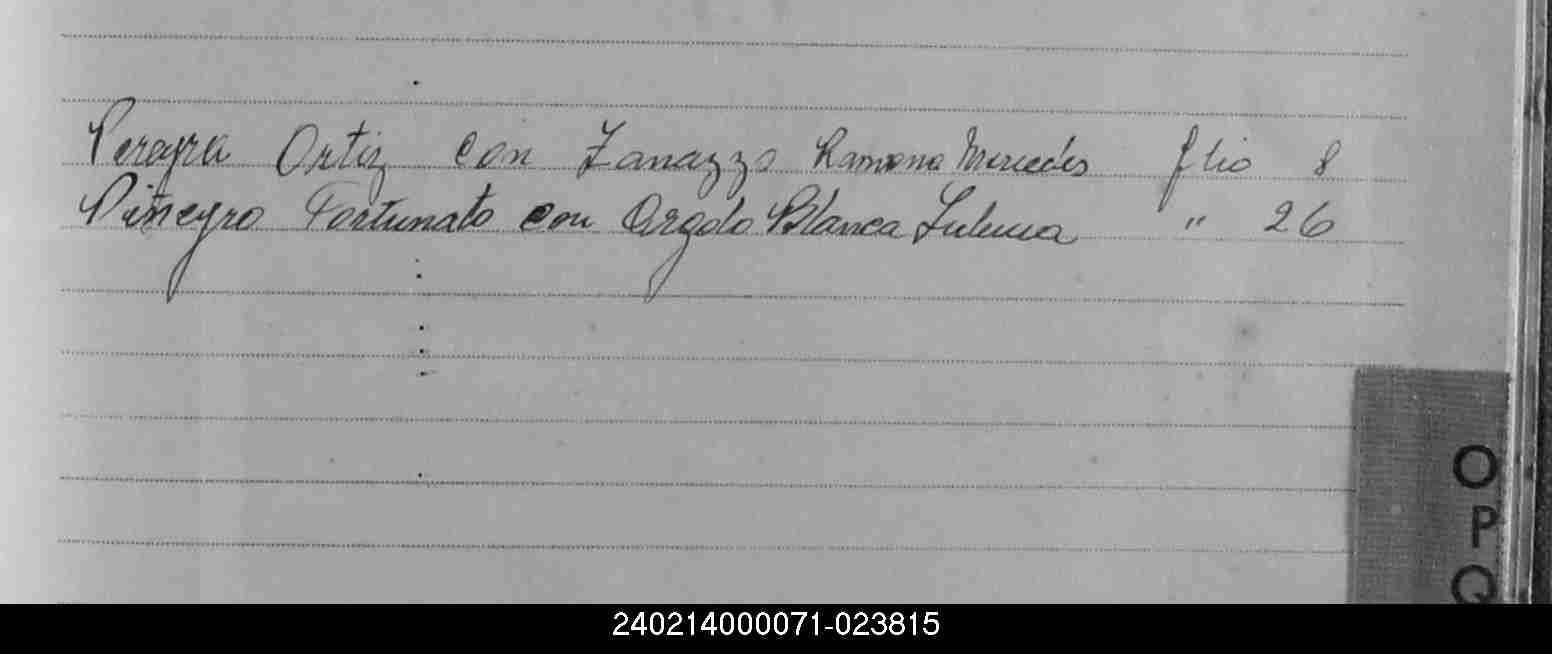 Pereyra Ortiz con Zanazzo Ramona Mercedes flio 8
Piñeyro Fortunato con Argolo Blanca Zulema " 26
O
P
Q
240214000071-023815